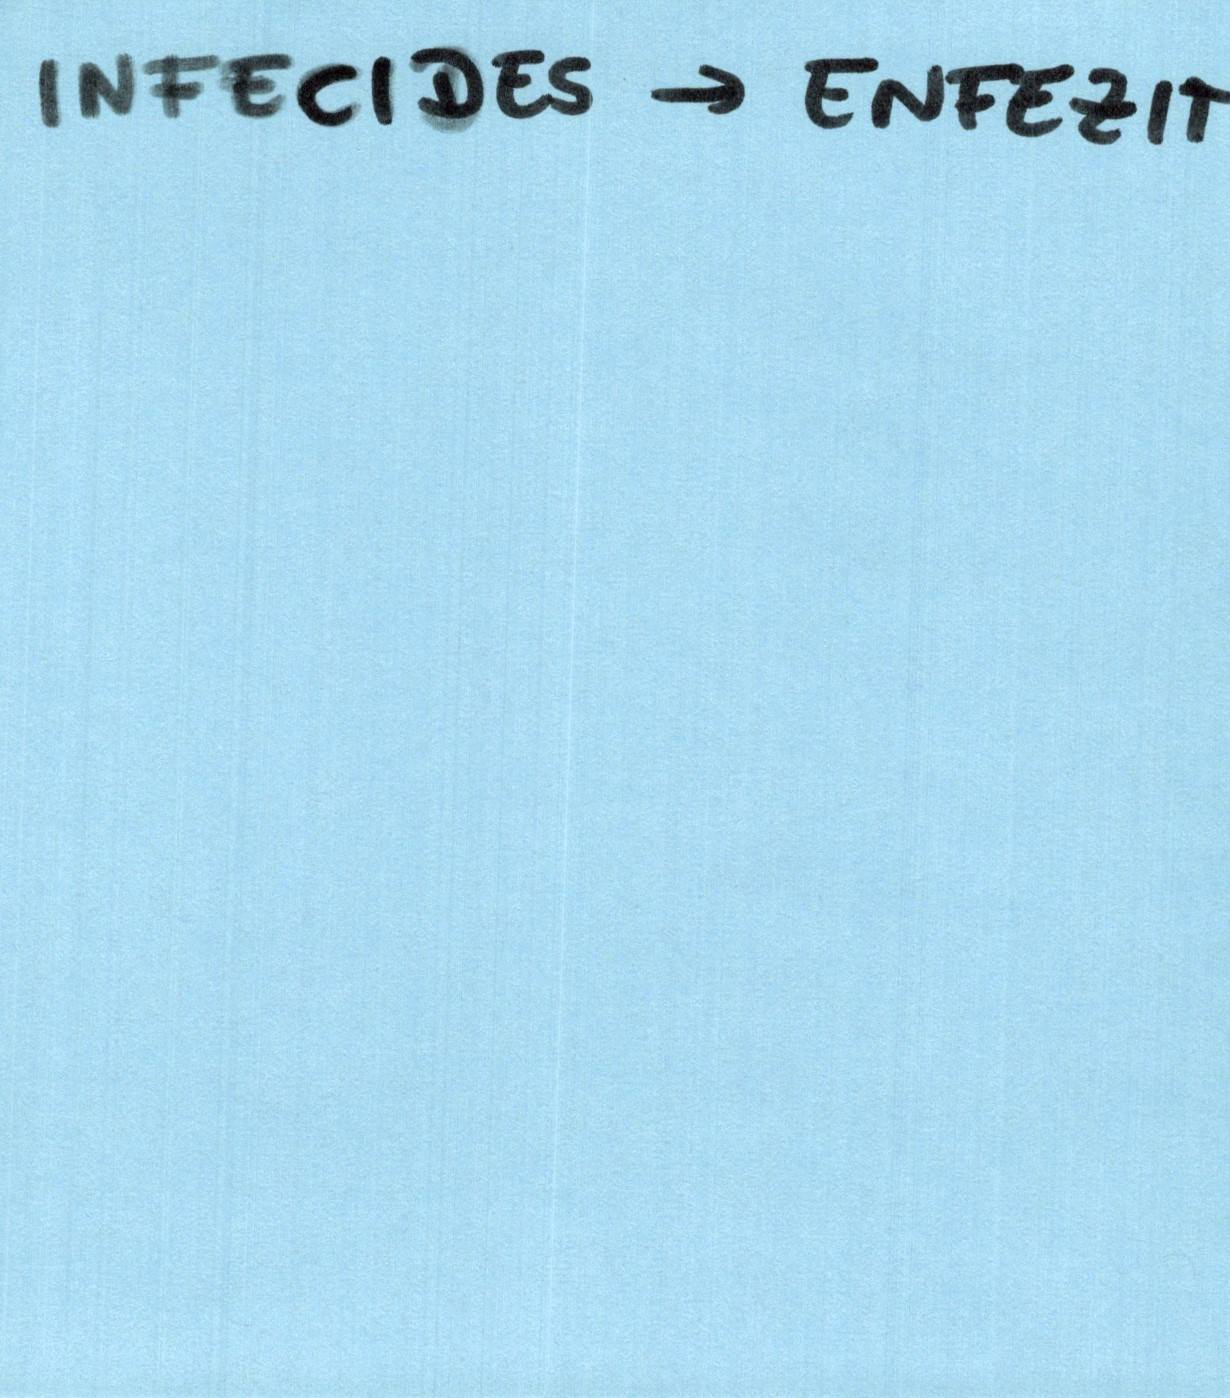 INFECIDES → ENFEZIT